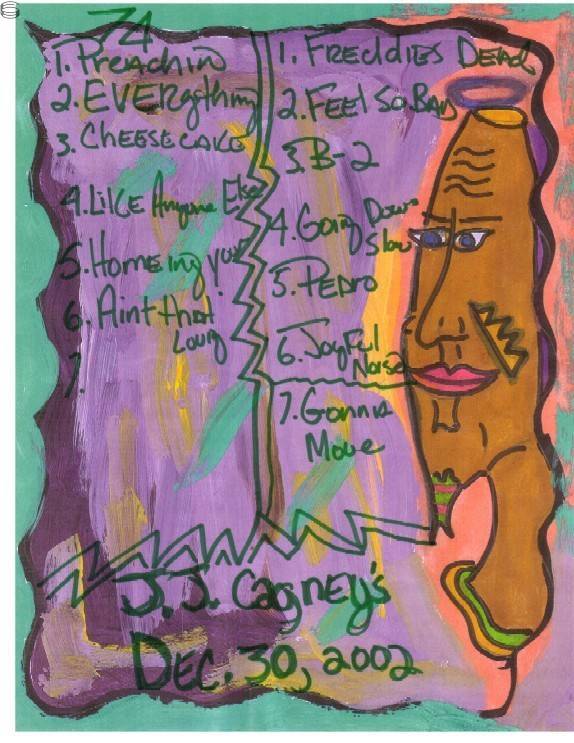 74
1. Preachin
2. EVERgything
3. Cheesecake
4. Like Anyone Else
5. Home in you
6. Aint that
Loving
7.
1. Freddies Dead
2. Feel So Bad
3. B-2
4. Going Down
Slow
5. Pedro
6. Joyful
Noise
7. Gonna
Move
J.J. Cagney's
Dec. 30, 2002